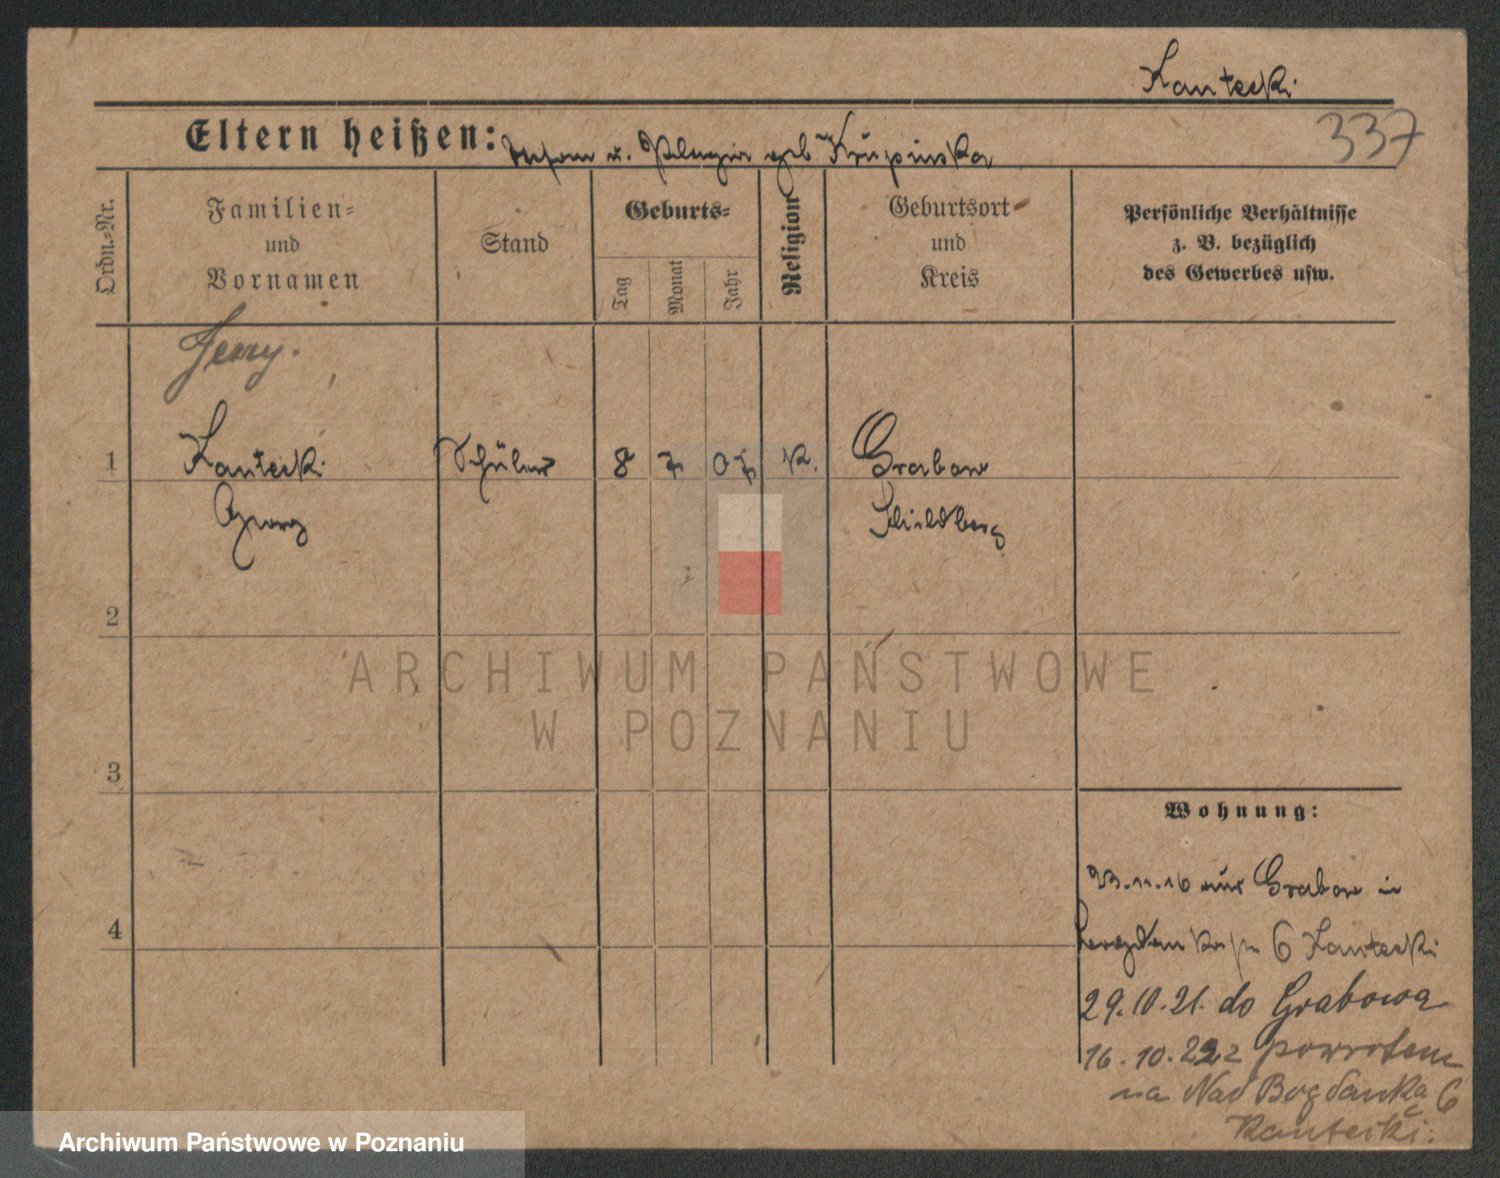 Kantecki
337
Eltern heißen: u. Pelagia geb Krupinska
Ordn.-Nr.
Familien-
und
Vornamen
Stand
Geburts-
Tag
Monat
Jahr
Religion
Geburtsort
und
Kreis
Persönliche Verhältnisse
z. B. bezüglich
des Gewerbes usw.
Jerzy.
1 Kantecki Schüler 8 7 07 K. Grabow
Georg Schildberg
2
3
4
Wohnung:
23.11.16 aus Grabow in
6 Kantecki
29.10.21. do Grabowa
16.10.22 powrotem
na Nad Bogdanką 6
Kantecki.
ARCHIWUM PAŃSTWOWE
W POZNANIU
Archiwum Państwowe w Poznaniu